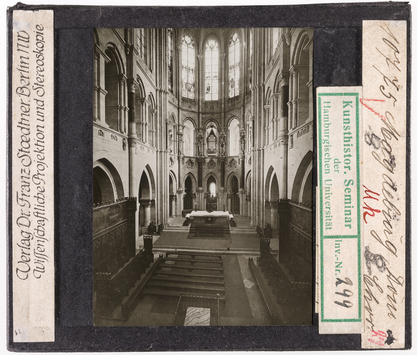 Verlag Dr. Franz Stoedtner, Berlin NW
Wissenschaftliche Projektion und Stereoskopie
Kunsthistor. Seminar
der
Hamburgischen Universität
Inv.-Nr. 299
Magdeburg Dom
Mh
Chor